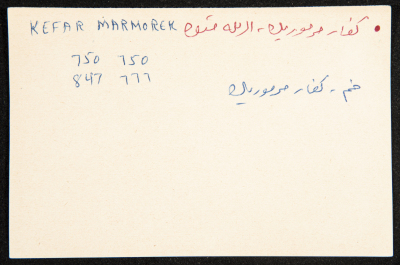 KEFAR MARMOREK كفار مرموريك - الرمله
750 750
847 777
ضم - كفار مرموريك